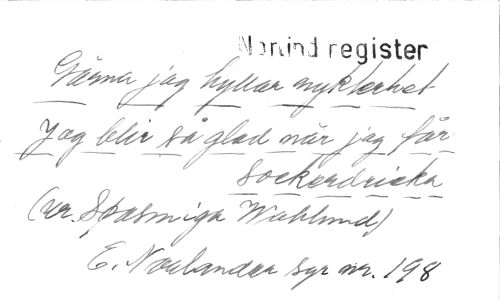 Norlind register
Gärna jag hyllar nykterhet
Jag blir så glad när jag får
sockerdricka
(ur. Spasmiga Wahlund)
E. Norlander syr nr. 198